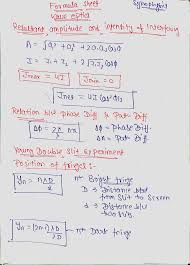 Formula sheet
Wave optics
Resultant amplitude and intensity of Interference
A = √a₁² + a₂² + 2a₁a₂cosφ
I = I₁ + I₂ + 2√I₁I₂ cosφ
Imax = 4I Imin = 0
Inet = 4I cos² φ/2
Relation b/w phase Diff & Path Diff.
Δφ = 2π/λ Δx
Δφ = phase Diff.
Δx = Path Diff.
Young Double Slit Experiment
Position of fringes:-
yn = nλD/d
n^th Bright fringe
D → Distance
from Slit to Screen
d → Distance b/w
two slits
yn = (2n-1)λD/2d
n^th Dark fringe